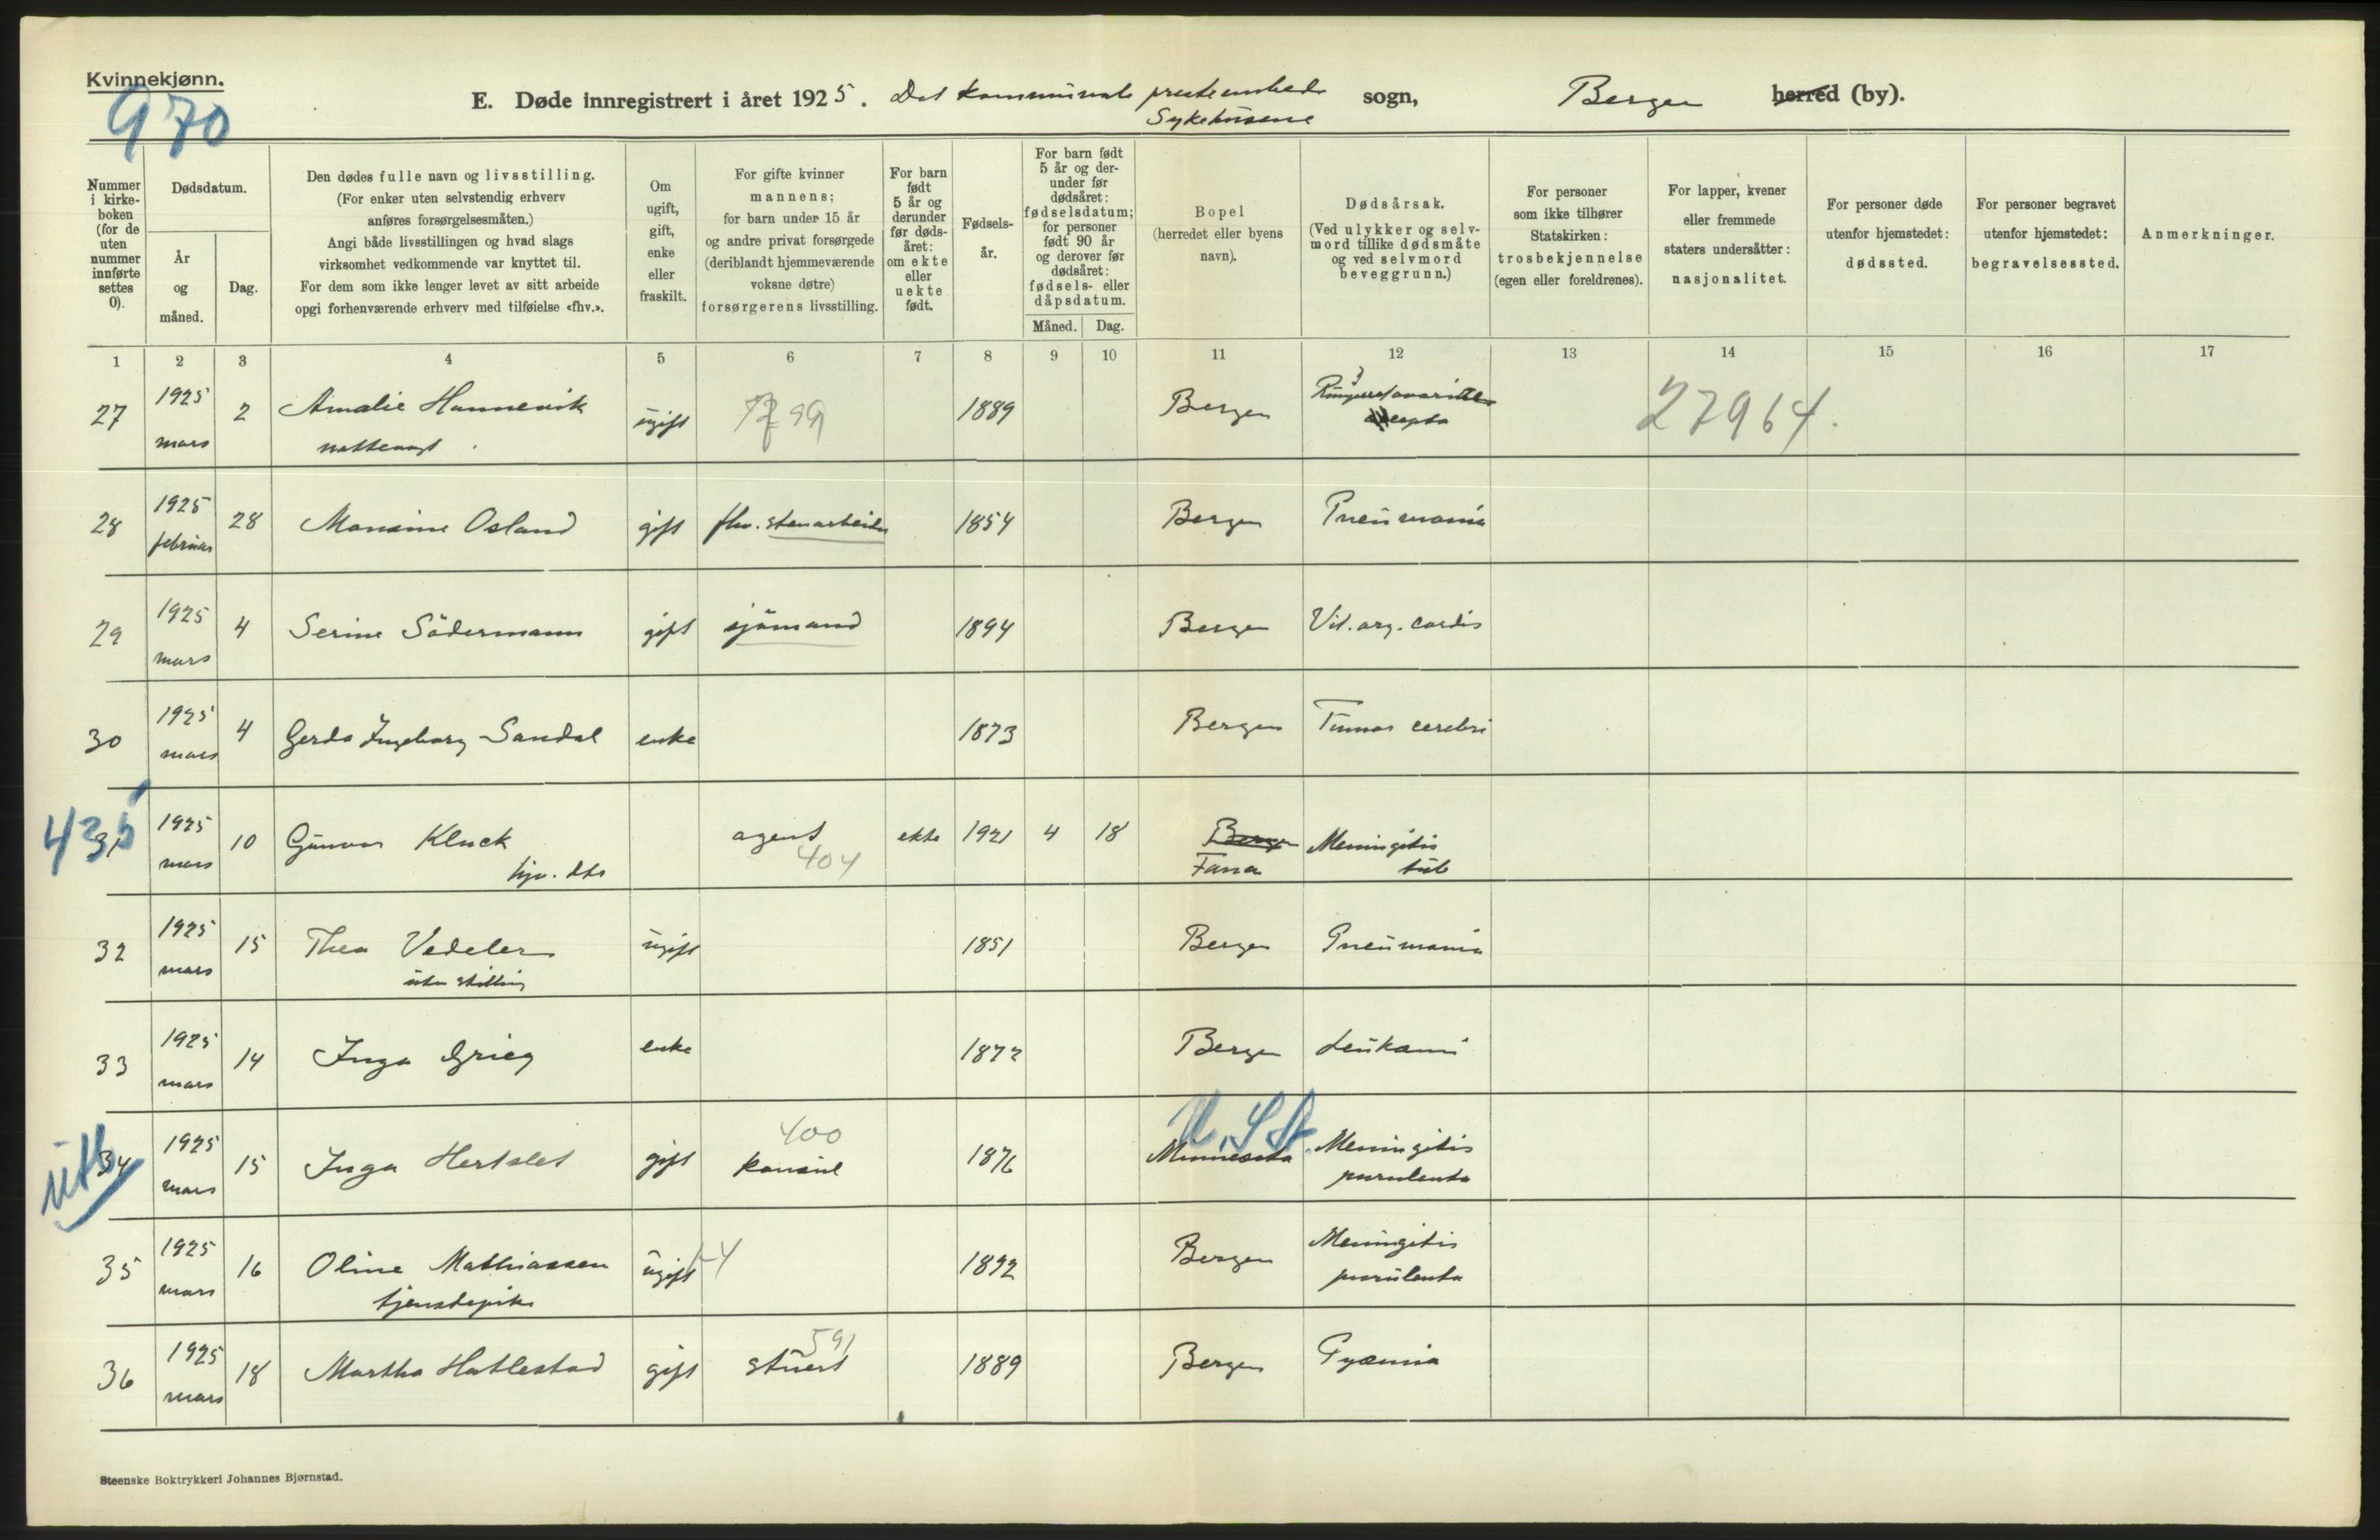 Kvinnekjønn.
970
E. Døde innregistrert i året 1925. Det kommunale presteembede sogn, Bergen herred (by).
Sykehusene
Nummer i kirkeboken (for de uten nummer innførte settes 0).
Dødsdatum.
År og måned.
Dag.
Den dødes fulle navn og livsstilling.
(For enker uten selvstendig erhverv
anføres forsørgelsesmåten.)
Angi både livsstillingen og hvad slags
virksomhet vedkommende var knyttet til.
For dem som ikke lenger levet av sitt arbeide
opgi forhenværende erhverv med tilføielse «fhv.».
Om ugift, gift, enke eller fraskilt.
For gifte kvinner
mannens;
for barn under 15 år
og andre privat forsørgede
(deriblandt hjemmeværende
voksne døtre)
forsørgerens livsstilling.
For barn født 5 år og derunder før dødsåret: om ekte eller uekte født.
Fødselsår.
For barn født 5 år og derunder før dødsåret: fødselsdatum; for personer født 90 år og derover før dødsåret: fødsels- eller dåpsdatum.
Måned. Dag.
Bopel
(herredet eller byens
navn).
Dødsårsak.
(Ved ulykker og selvmord tillike dødsmåte og ved selvmord beveggrunn.)
For personer
som ikke tilhører
Statskirken:
trosbekjennelse
(egen eller foreldrenes).
For lapper, kvener
eller fremmede
staters undersåtter:
nasjonalitet.
For personer døde
utenfor hjemstedet:
dødssted.
For personer begravet
utenfor hjemstedet:
begravelsessted.
Anmerkninger.
1 2 3 4 5 6 7 8 9 10 11 12 13 14 15 16 17
27 1925 mars 2 Amalie Hannevik ugift 99 1889 Bergen 27964.
28 1925 februar 28 Monsine Osland gift fhv. stenarbeider 1854 Bergen Pneumonia
29 1925 mars 4 Serine Södermann gift sjömand 1894 Bergen Vit. org. cordis
30 1925 mars 4 Gerda Ingeborg Sandal enke 1873 Bergen Tumor cerebri
435 31 1925 mars 10 Gunvor Kluck hjv. dtr agent 404 ekte 1921 4 18 Bergen Fana Meningitis tub
32 1925 mars 15 Thea Vedeler uten stilling ugift 1851 Bergen Pneumonia
33 1925 mars 14 Inga Grieg enke 1872 Bergen Leukämi
utl 34 1925 mars 15 Inga Hertslet gift 400 konsul 1876 U.St. Minnesota Meningitis purulenta
35 1925 mars 16 Oline Mathiassen tjenestepike ugift 1892 Bergen Meningitis purulenta
36 1925 mars 18 Martha Hatlestad gift 591 stuert 1889 Bergen Pyæmia
Steenske Boktrykkeri Johannes Bjørnstad.